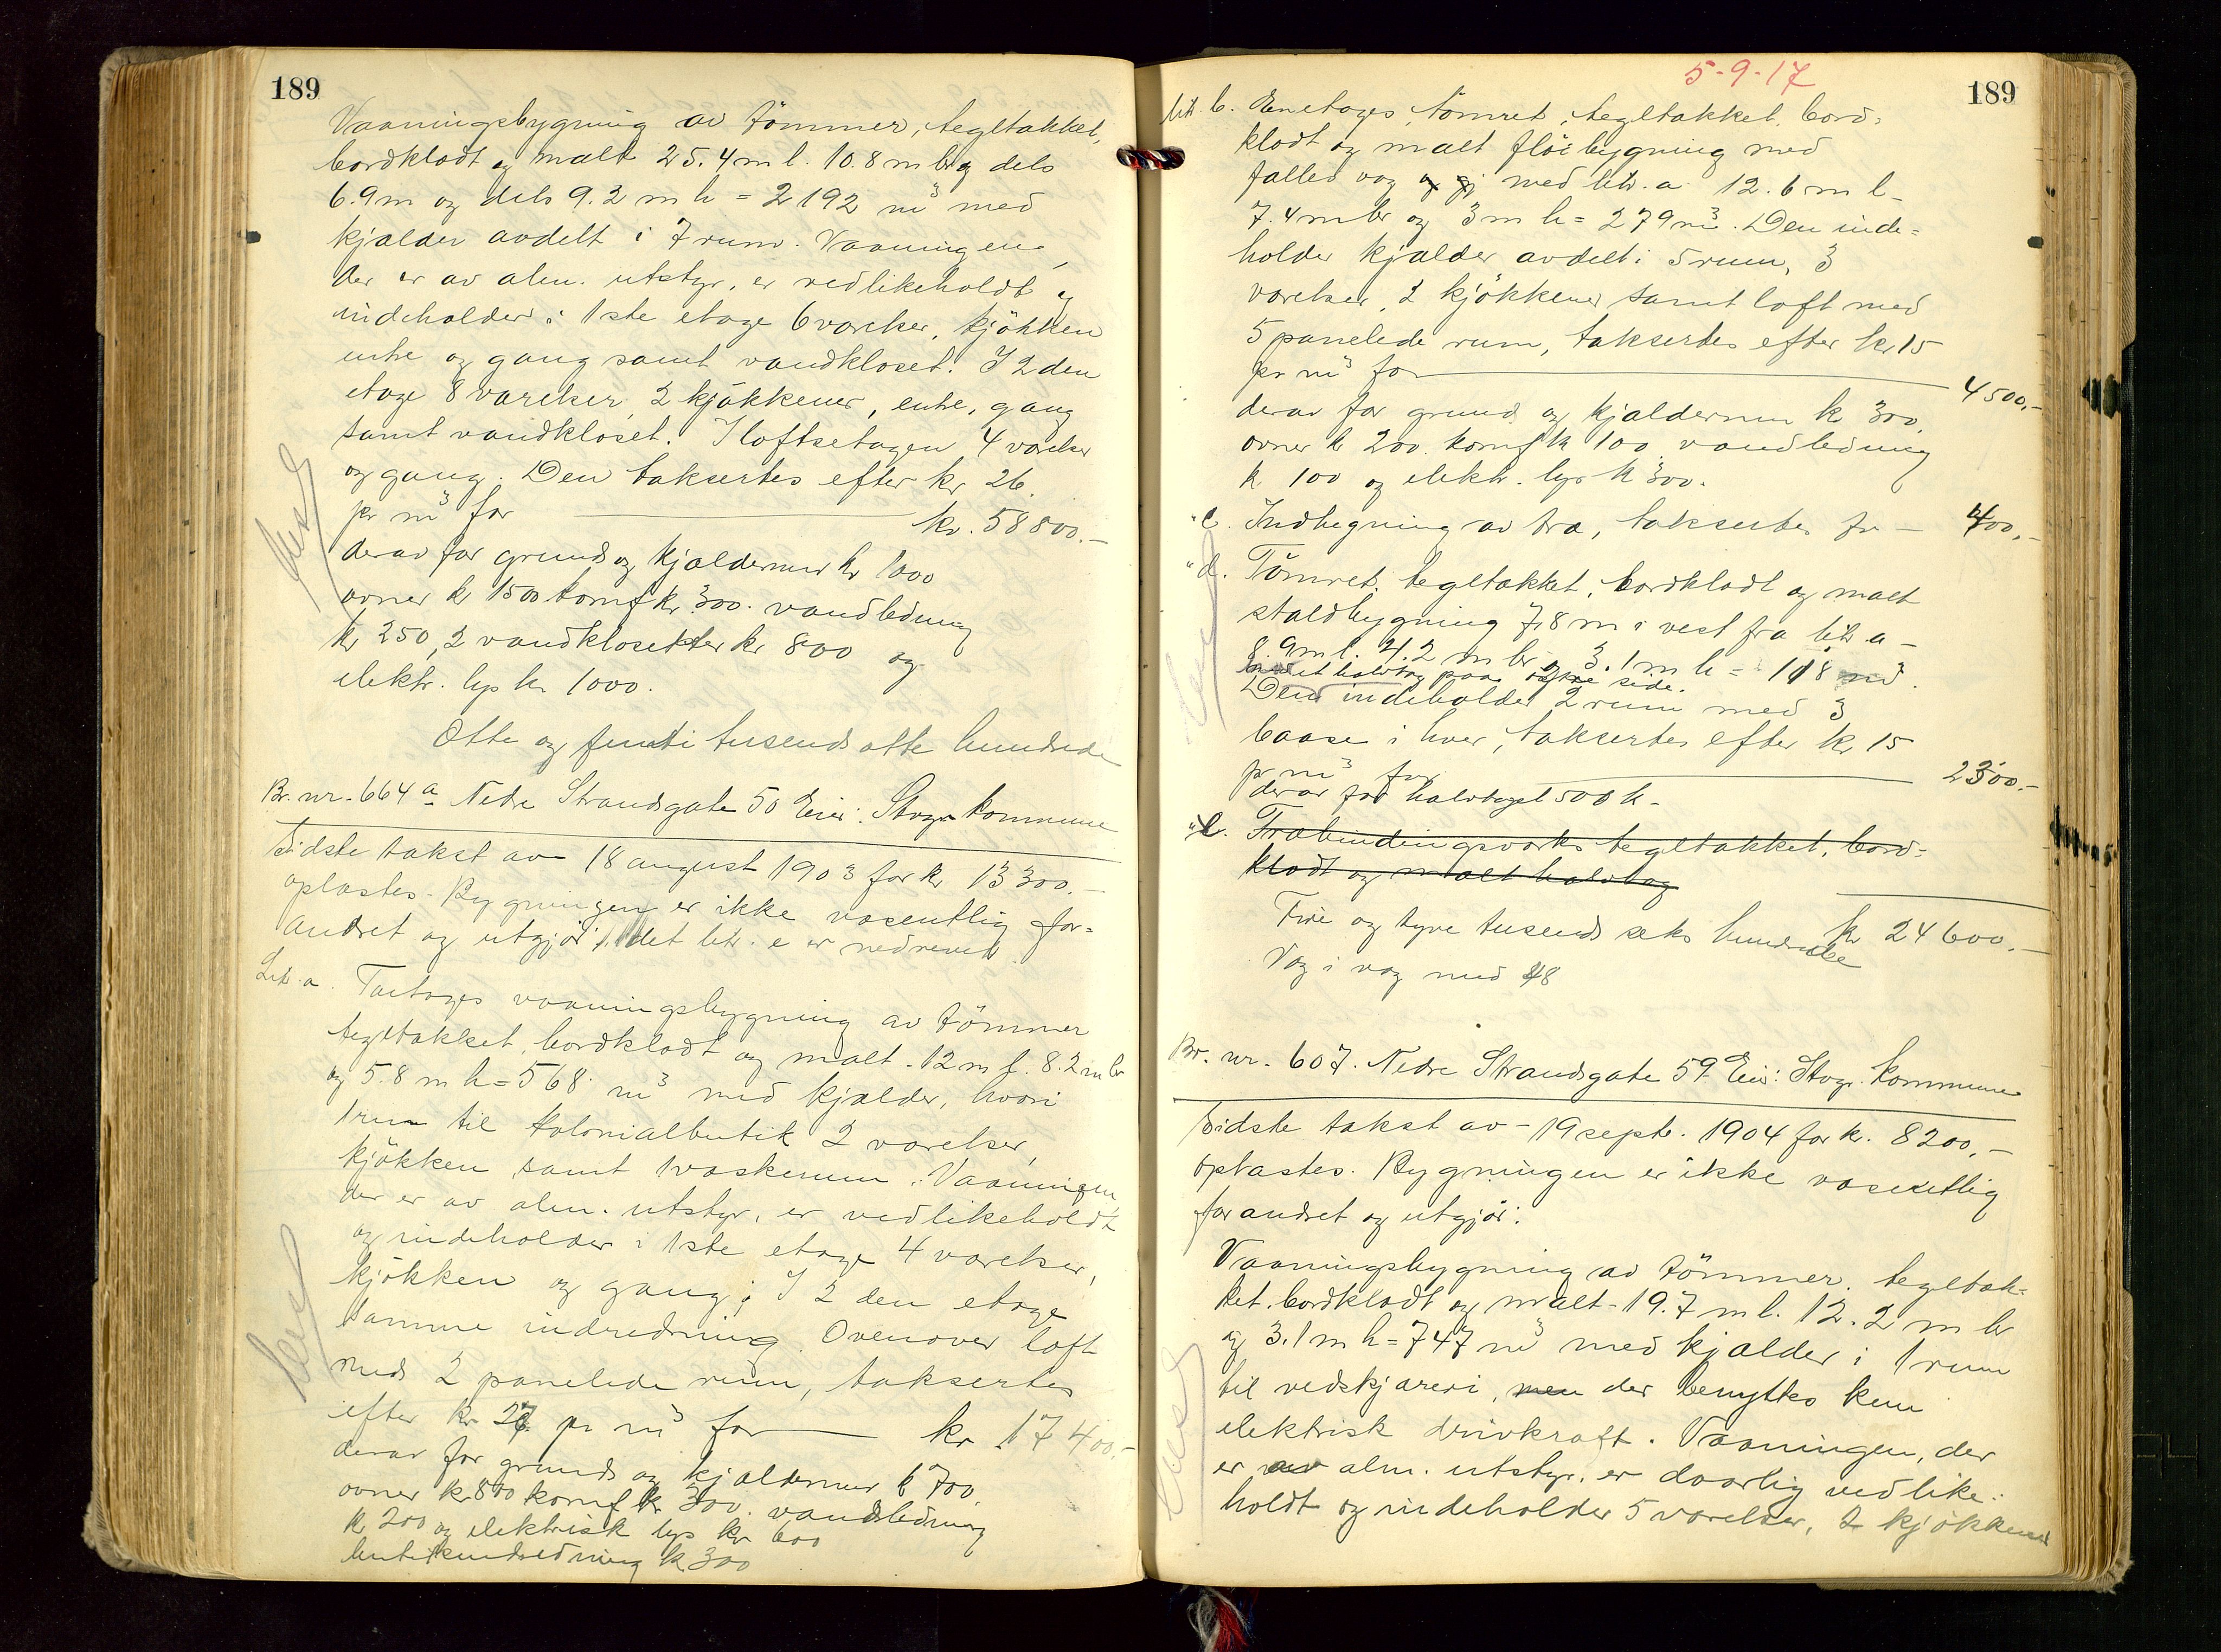 189
Vaaningsbygning av tömmer, tegltækket,
bordklædt og malt 25.4 m l. 10.8 m br og dels
6.9 m og dels 9.2 m h = 2192 m³ med
kjælder avdelt i 7 rum. Vaaningen,
der er av alm. utstyr, er vedlikeholdt og
indeholder i 1ste etage 6 værelser, kjökken
entre og gang samt vandkloset. I 2den
etage 8 værelser, 2 kjökkener, entre, gang
samt vandkloset. I loftsetagen 4 værelser
og gang. Den taksertes efter kr 26
pr m³ for kr. 58800.-
derav for grund og kjældermur kr 1000
ovner kr 1500 komf kr. 300. vandledning
kr 250, 2 vandklosetter kr 800 og
elektr. lys kr 1000.
Otte og femti tusend otte hundrede
Br. nr. 664 a Nedre Strandgate 50 Eier: Stvgr kommune
Sidste takst av 18 august 1903 for kr 13300.-
oplæstes. Bygningen er ikke væsentlig for-
andret og utgjör, idet litr. e er nedrevet.
Litr. a. Toetages vaaningsbygning av tömmer
tegltækket, bordklædt og malt. 12 m l. 8.2 m br
og 5.8 m h = 568 m³ med kjælder, hvori
1 rum til kolonialbutik 2 værelser,
kjökken samt 1 vaskerum. Vaaningen
der er av alm. utstyr, er vedlikeholdt
og indeholder i 1ste etage 4 værelser,
kjökken og gang; I 2den etage
samme indredning. Ovenover loft
med 2 panelede rum, taksertes
efter kr 27 pr m³ for kr 17400.-
derav for grund og kjældermur kr 700
ovner kr 800 komf kr 300. vandledning
kr 200 og elektrisk lys kr 600
butikindredning kr 300
5-9-17
189
litr. b. Enetages, tömret, tegltækket, bord-
klædt og malt flöibygning med
fælles væg og gj med litr. a 12.6 m l
7.4 m br og 3 m h = 279 m³. Den inde-
holder kjælder avdelt i 5 rum, 3
værelser, 2 kjökkener samt loft med
5 panelede rum, taksertes efter kr 15
pr m³ for 4500.-
derav for grund og kjældermur kr 300,
ovner kr 200. komf kr 100 vandledning
kr 100 og elektr. lys kr 300.
" c. Indhegning av træ, taksertes for 400.-
" d. Tömret, tegltækket, bordklædt og malt
staldbygning 7.8 m i vest fra litr. a -
8.9 m l. 4.2 m br og 3.1 m h = 118 m³.
med et halvtag paa søndre side.
Den indeholder 2 rum med 3
baase i hver, taksertes efter kr 15
pr m³ for 2300.-
derav for halvtaget 500 kr-
" e. Træbindingsværks tegltækket, bord-
klædt og malt halvtag
kr 24600.-
Fire og tyve tusend seks hundrede
Væg i væg med 48
Br. nr. 607. Nedre Strandgate 59 Eier: Stvgr. kommune
Sidste takst av 19 septr. 1904 for kr. 8200.-
oplæstes. Bygningen er ikke væsentlig
forandret og utgjör:
Vaaningsbygning av tömmer, tegltæk-
ket, bordklædt og malt. 19.7 m l. 12.2 m br
og 3.1 m h = 747 m³ med kjælder i 1 rum
til vedskjæreri, men der benyttes kun
elektrisk drivkraft. Vaaningen, der
er av alm. utstyr, er daarlig vedlike-
holdt og indeholder 5 værelser, 2 kjökkener